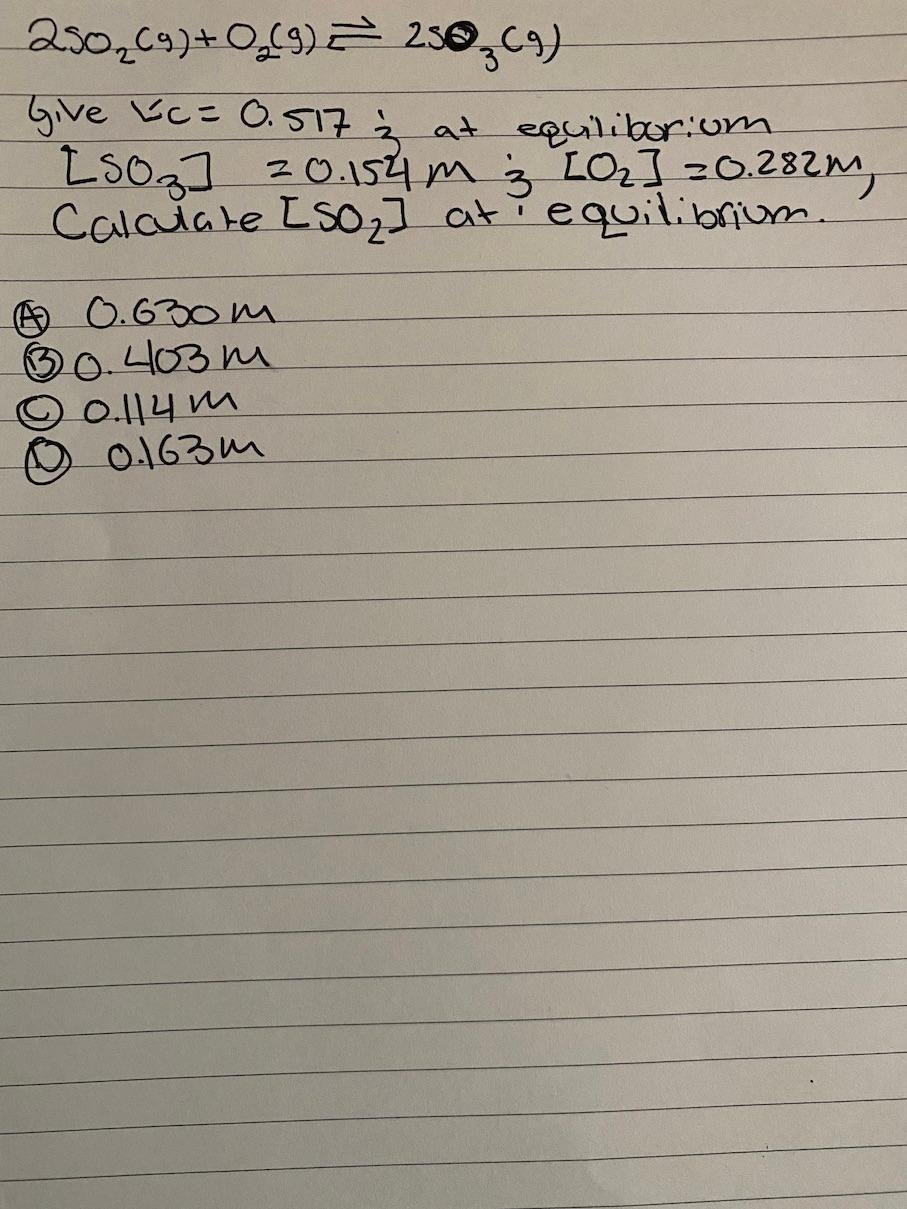 2SO₂(g) + O₂(g) ⇌ 2SO₃(g)
Give Kc = 0.517 ; at equiliborium
[SO₃] = 0.154 M ; [O₂] = 0.282M,
Calculate [SO₂] at equilibrium.
Ⓐ 0.630 M
Ⓑ 0.403 M
Ⓒ 0.114 M
Ⓓ 0.163 M